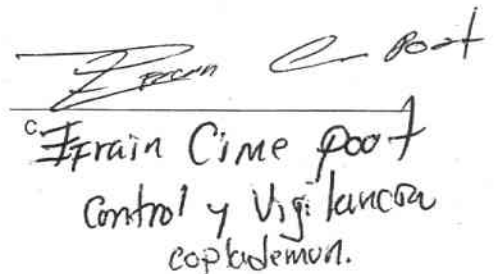 Efrain C Poot
C. Efrain Cime poot
Control y Vigilancia
coplademun.